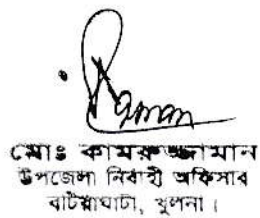 মোঃ কামরুজ্জামান
উপজেলা নির্বাহী অফিসার
বটিয়াঘাটা, খুলনা।